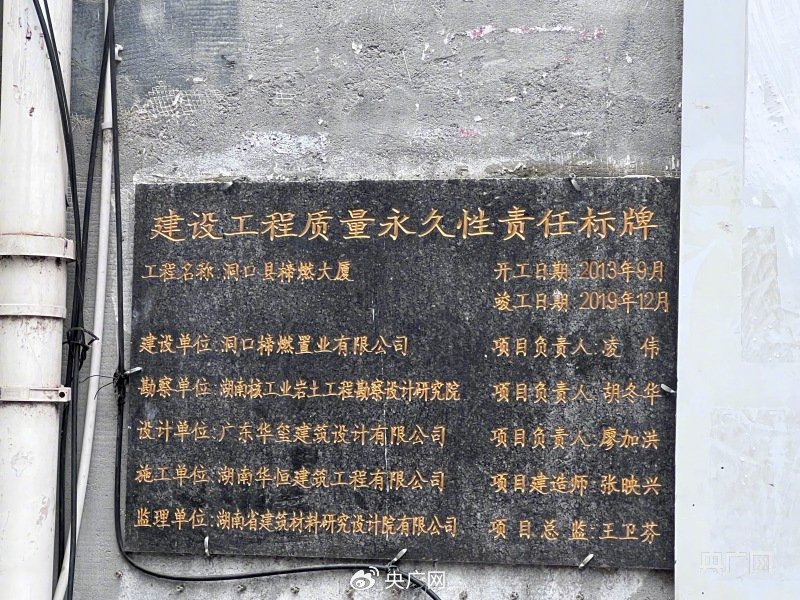 建设工程质量永久性责任标牌
工程名称:洞口县樟燃大厦 开工日期:2013年9月
竣工日期:2019年12月
建设单位:洞口樟燃置业有限公司 项目负责人:凌 伟
勘察单位:湖南核工业岩土工程勘察设计研究院 项目负责人:胡冬华
设计单位:广东华玺建筑设计有限公司 项目负责人:廖加洪
施工单位:湖南华恒建筑工程有限公司 项目建造师:张映兴
监理单位:湖南省建筑材料研究设计院有限公司 项目总监:王卫芬
央广网
央广网